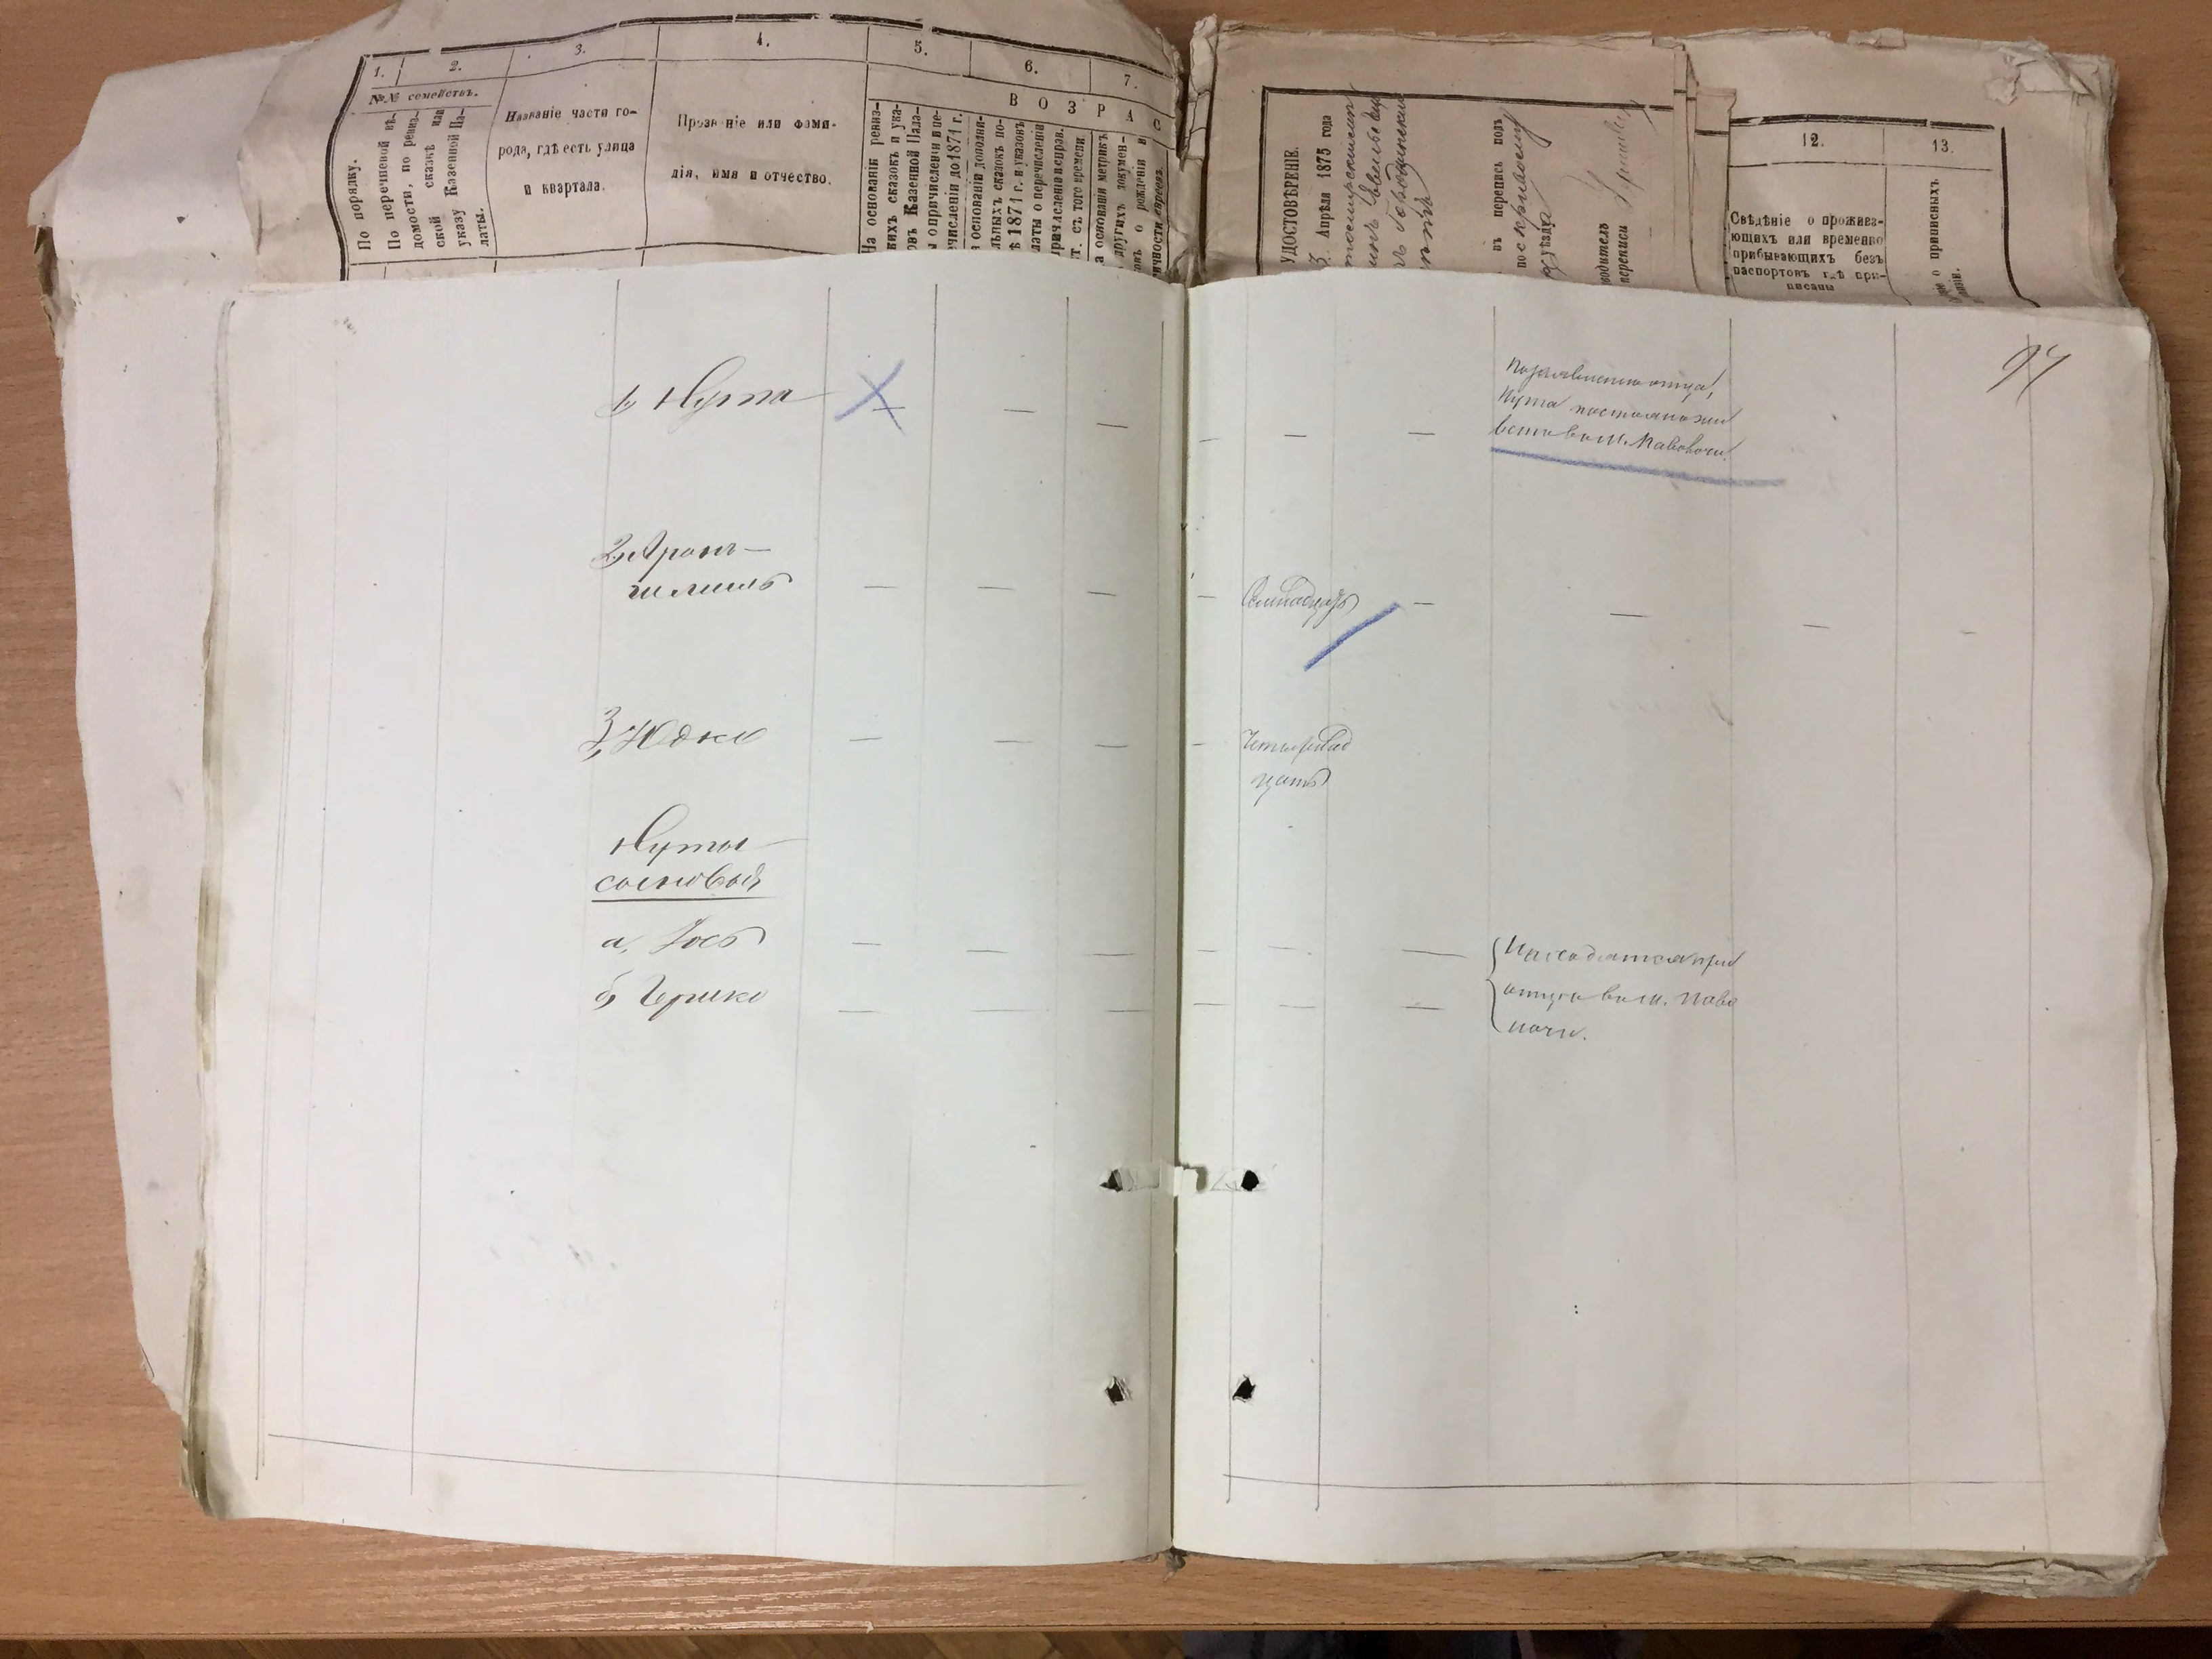 1.
2.
3.
4.
5.
6.
7.
№№ семействъ.
По порядку.
По перечневой вѣ-
домости, по ревиз-
ской сказкѣ или
указу Казенной Па-
латы.
Названіе части го-
рода, гдѣ есть улица
и квартала.
Прозваніе или фами-
лія, имя и отчество.
В О З Р А С
На основаніи ревиз-
скихъ сказокъ и ука-
овъ Казенной Пала-
ы о причисленіи и пе-
ечисленіи до 1871 г.
основаніи дополни-
льныхъ сказокъ по-
ѣ 1871 г. и указовъ
латы о перечисленіи
причисленіи и исправ.
т. съ того времени
а основаніи метрикъ
другихъ докумен-
овъ о рожденіи и
ичности евреевъ.
УДОСТОВѢРЕНІЕ.
3 Апрѣля 1875 года
въ перепись подъ
уѣзда
водитель
переписи
12.
13.
Свѣдѣніе о прожива-
ющихъ или временно
прибывающихъ безъ
паспортовъ гдѣ при-
писаны
о приписныхъ
97
1, Нута
По заявленію отца,
Нута постоянно жи
вет в м. Паволочи.
2, Аронъ
шлиома
Семнадцать
3, Юдко
Четырнад
цать
Нуты
сыновья
а, Іось
б, Гершко
Находятся при
отцѣ в м. Паво
лочи.